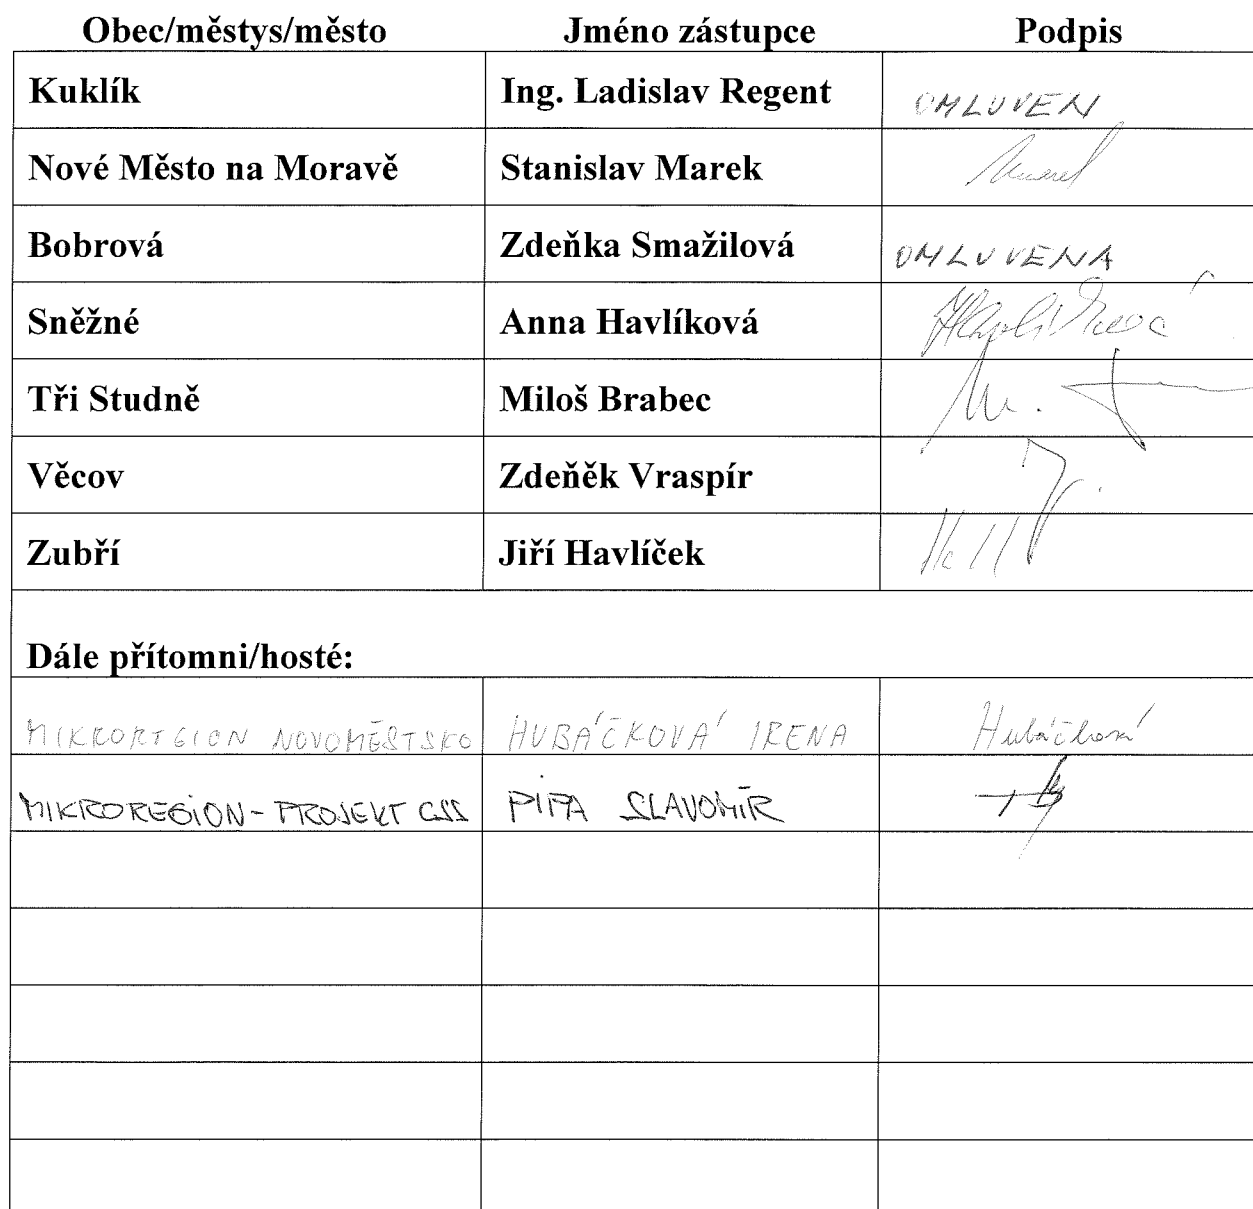 Obec/městys/město Jméno zástupce Podpis
Kuklík Ing. Ladislav Regent OMLUVEN
Nové Město na Moravě Stanislav Marek
Bobrová Zdeňka Smažilová OMLUVENA
Sněžné Anna Havlíková Havlíková
Tři Studně Miloš Brabec
Věcov Zdeňěk Vraspír
Zubří Jiří Havlíček
Dále přítomni/hosté:
MIKROREGION NOVOMĚSTSKO HUBÁČKOVÁ IRENA Hubáčková
MIKROREGION-PROJEKT CSS PIPA SLAVOMÍR